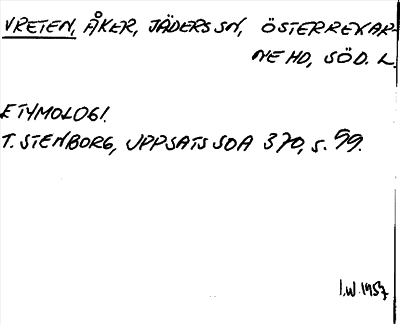 VRETEN, ÅKER, JÄDERS SN, ÖSTERREKAR-
NE HD, SÖD. L.
ETYMOLOGI.
T. STENBORG, UPPSATS SOA 370, s. 99.
I.W. 1957